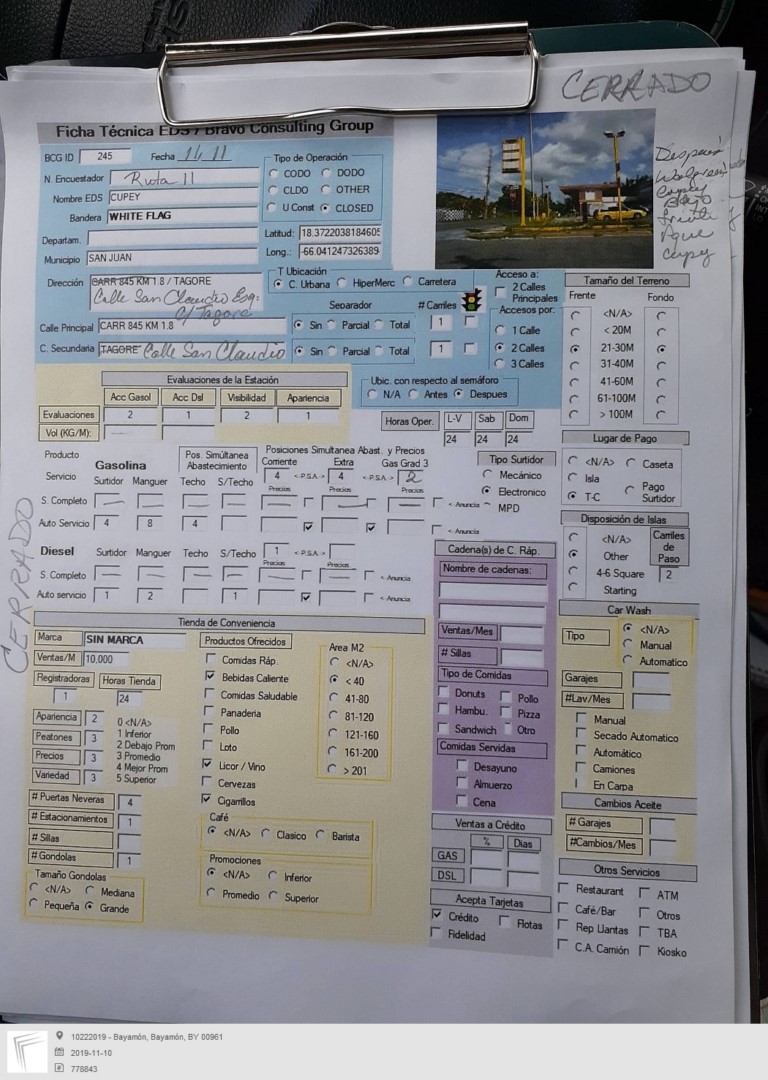 CERRADO
Ficha Técnica EDS / Bravo Consulting Group
BCG ID 245 Fecha 11/11
N. Encuestador Ruta 11
Nombre EDS CUPEY
Bandera WHITE FLAG
Departam.
Municipio SAN JUAN
Tipo de Operación
CODO DODO
CLDO OTHER
U Const CLOSED
Latitud: 18.3722038184605
Long.: -66.041247326389
Después
Walgreens
Cupey
Bajo
frente
Cupy
Dirección CARR 845 KM 1.8 / TAGORE
Calle San Claudio Esq.
C/ Tagore
Calle Principal CARR 845 KM 1.8
C. Secundaria TAGORE Calle San Claudio
T Ubicación
C. Urbana HiperMerc Carretera
Separador # Carriles
Sin Parcial Total 1
Sin Parcial Total 1
Acceso a:
2 Calles Principales
Accesos por:
1 Calle
2 Calles
3 Calles
Ubic. con respecto al semáforo
N/A Antes Despues
Tamaño del Terreno
Frente Fondo
<N/A>
< 20M
21-30M
31-40M
41-60M
61-100M
> 100M
Evaluaciones de la Estación
Acc Gasol Acc Dsl Visibilidad Apariencia
Evaluaciones 2 1 2 1
Vol (KG/M):
Horas Oper. L-V Sab Dom
24 24 24
Lugar de Pago
<N/A> Caseta
Isla
T-C Pago Surtidor
Producto
Servicio
Gasolina
Surtidor Manguer
Pos. Simúltanea Abastecimiento
Techo S/Techo
Posiciones Simultanea Abast. y Precios
Corriente Extra Gas Grad 3
4 <-P.S.A-> 4 <-P.S.A-> 2
Precios Precios Precios
S. Completo <- Anuncia
Auto Servicio 4 8 4 <- Anuncia
Tipo Surtidor
Mecánico
Electronico
MPD
Disposición de Islas
<N/A>
Other
4-6 Square
Starting
Carriles de Paso
2
Diesel Surtidor Manguer Techo S/Techo 1 <-P.S.A->
Precios Precios
S. Completo <- Anuncia
Auto servicio 1 2 1 <- Anuncia
CERRADO
Cadena(s) de C. Ráp.
Nombre de cadenas:
Ventas/Mes
# Sillas
Tipo de Comidas
Donuts Pollo
Hambu. Pizza
Sandwich Otro
Comidas Servidas
Desayuno
Almuerzo
Cena
Car Wash
Tipo <N/A>
Manual
Automatico
Garajes
#Lav/Mes
Manual
Secado Automatico
Automático
Camiones
En Carpa
Cambios Aceite
# Garajes
#Cambios/Mes
Tienda de Conveniencia
Marca SIN MARCA
Ventas/M 10.000
Registradoras Horas Tienda
1 24
Apariencia 2
Peatones 3
Precios 3
Variedad 3
0 <N/A>
1 Inferior
2 Debajo Prom
3 Promedio
4 Mejor Prom
5 Superior
# Puertas Neveras 4
# Estacionamientos 1
# Sillas
# Gondolas 1
Tamaño Gondolas
<N/A> Mediana
Pequeña Grande
Productos Ofrecidos
Comidas Ráp.
Bebidas Caliente
Comidas Saludable
Panaderia
Pollo
Loto
Licor / Vino
Cervezas
Cigarrillos
Area M2
<N/A>
< 40
41-80
81-120
121-160
161-200
> 201
Café
<N/A> Clasico Barista
Promociones
<N/A> Inferior
Promedio Superior
Ventas a Crédito
% Dias
GAS
DSL
Acepta Tarjetas
Crédito Flotas
Fidelidad
Otros Servicios
Restaurant ATM
Café/Bar Otros
Rep Llantas TBA
C.A. Camión Kiosko
10222019 - Bayamón, Bayamón, BY 00961
2019-11-10
778843